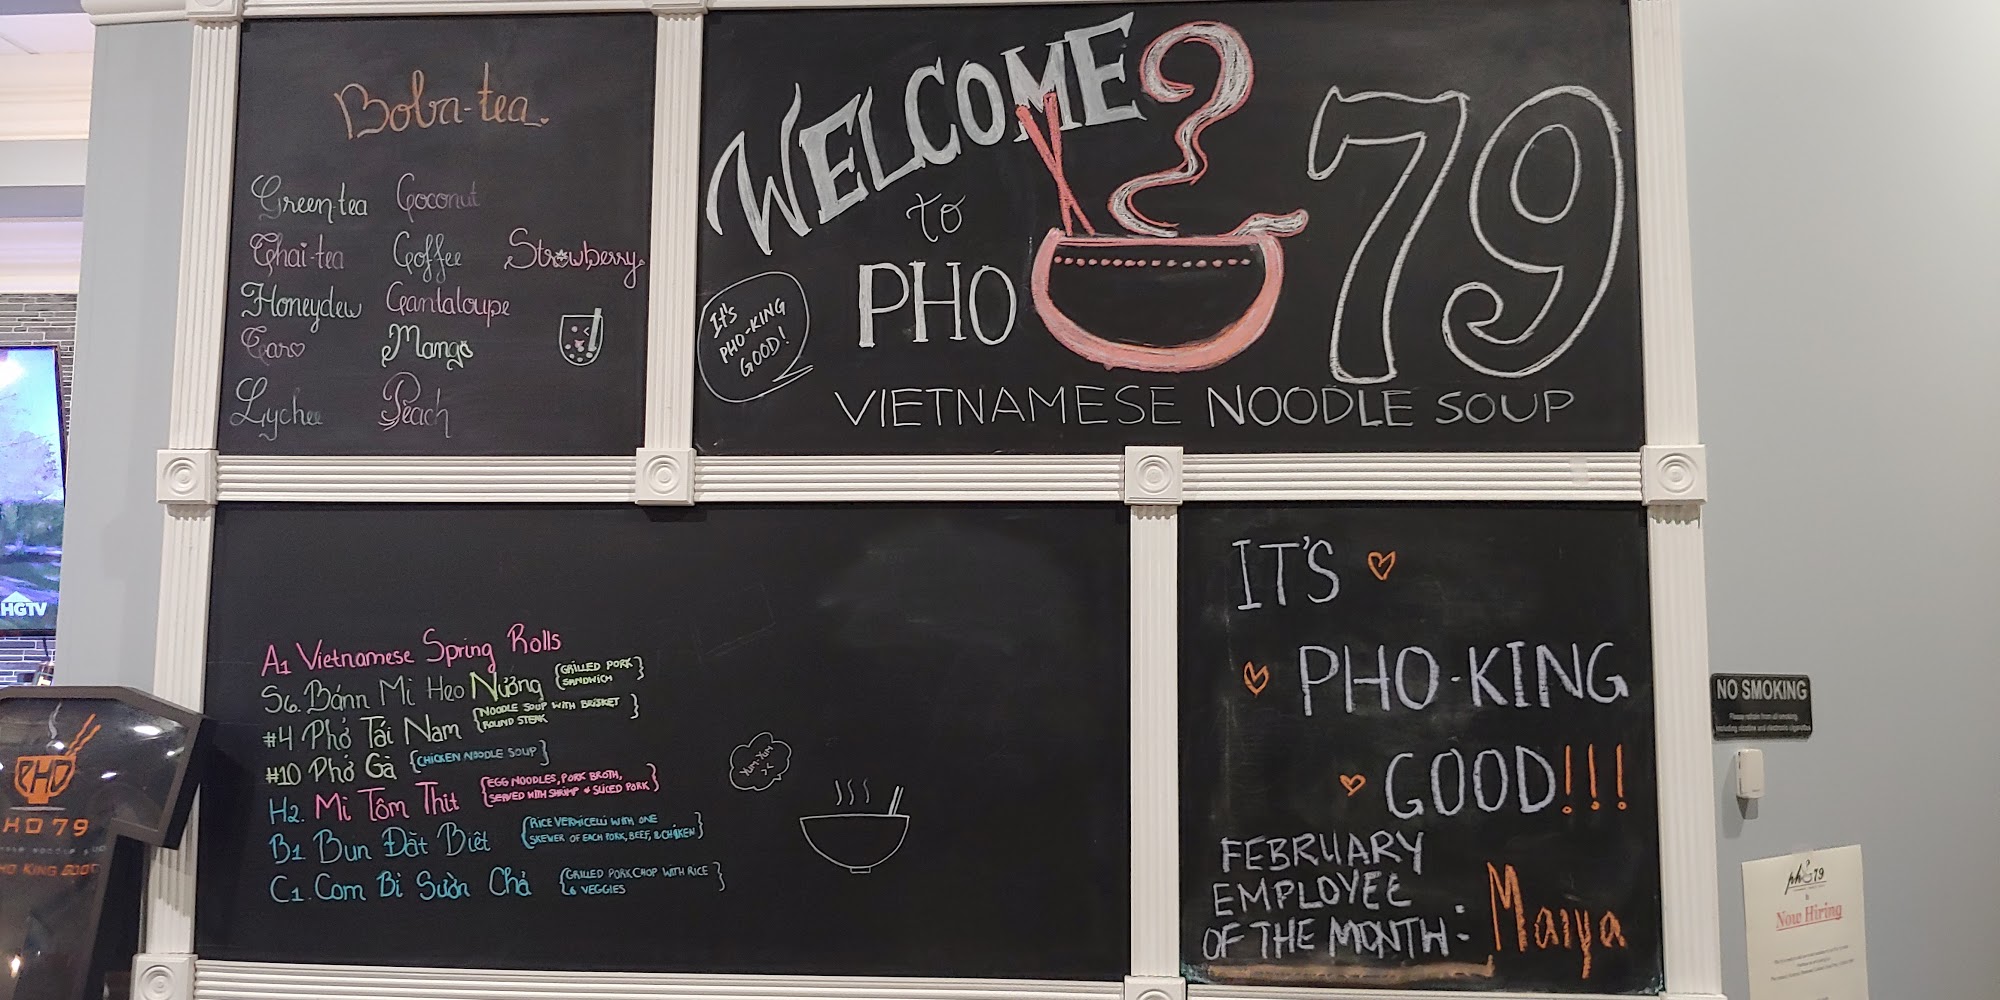 Boba-tea
Green-tea Coconut
Thai-tea Coffee Strawberry
Honeydew Cantaloupe
Taro Mango
Lychee Peach
WELCOME
to
PHO 79
It's
PHO-KING
GOOD!
VIETNAMESE NOODLE SOUP
A1 Vietnamese Spring Rolls
S6. Bánn Mi Heo Nướng {GRILLED PORK
SANDWICH}
#4 Phở Tái Nam {NOODLE SOUP WITH BRISKET
ROUND STEAK}
#10 Phở Gà {CHICKEN NOODLE SOUP}
H2. Mi Tôm Thit {EGG NOODLES, PORK BROTH,
SERVED WITH SHRIMP & SLICED PORK}
B1 Bun Đặt Biêt {RICE VERMICELLI WITH ONE
SKEWER OF EACH PORK, BEEF, & CHICKEN}
C1. Com Bi Sườn Chả {GRILLED PORKCHOP WITH RICE
& VEGGIES}
YUM-YUM
IT'S
PHO-KING
GOOD!!!
FEBRUARY
EMPLOYEE
OF THE MONTH: Maiya
HGTV
PHO
HO 79
HO KING GOOD
NO SMOKING
Please refrain from all smoking
including nicotine and electronic cigarettes
pho 79
Now Hiring